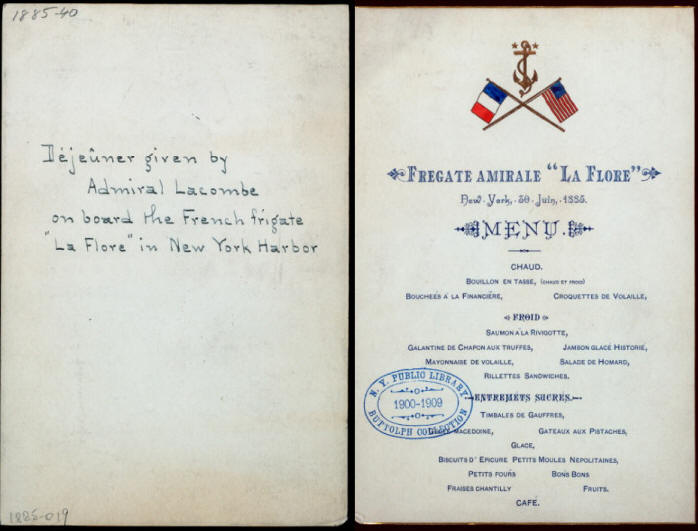 1885-40
Déjeûner given by
Admiral Lacombe
on board the French frigate
"La Flore" in New York Harbor
1885-019
FREGATE AMIRALE "LA FLORE"
New-York, 30 Juin, 1885.
MENU.
CHAUD.
BOUILLON EN TASSE, (CHAUD ET FROID)
BOUCHÉES À LA FINANCIÈRE, CROQUETTES DE VOLAILLE,
FROID
SAUMON À LA RIVIGOTTE,
GALANTINE DE CHAPON AUX TRUFFES, JAMBON GLACÉ HISTORIÉ,
MAYONNAISE DE VOLAILLE, SALADE DE HOMARD,
RILLETTES SANDWICHES.
ENTREMÊTS SUCRÉS.
TIMBALES DE GAUFFRES,
MACEDOINE, GATEAUX AUX PISTACHES,
GLACE,
BISCUITS D'EPICURE PETITS MOULES NEPOLITAINES,
PETITS FOURS BONS BONS
FRAISES CHANTILLY FRUITS.
CAFÉ.
N. Y. PUBLIC LIBRARY
1900-1909
BUTTOLPH COLLECTION